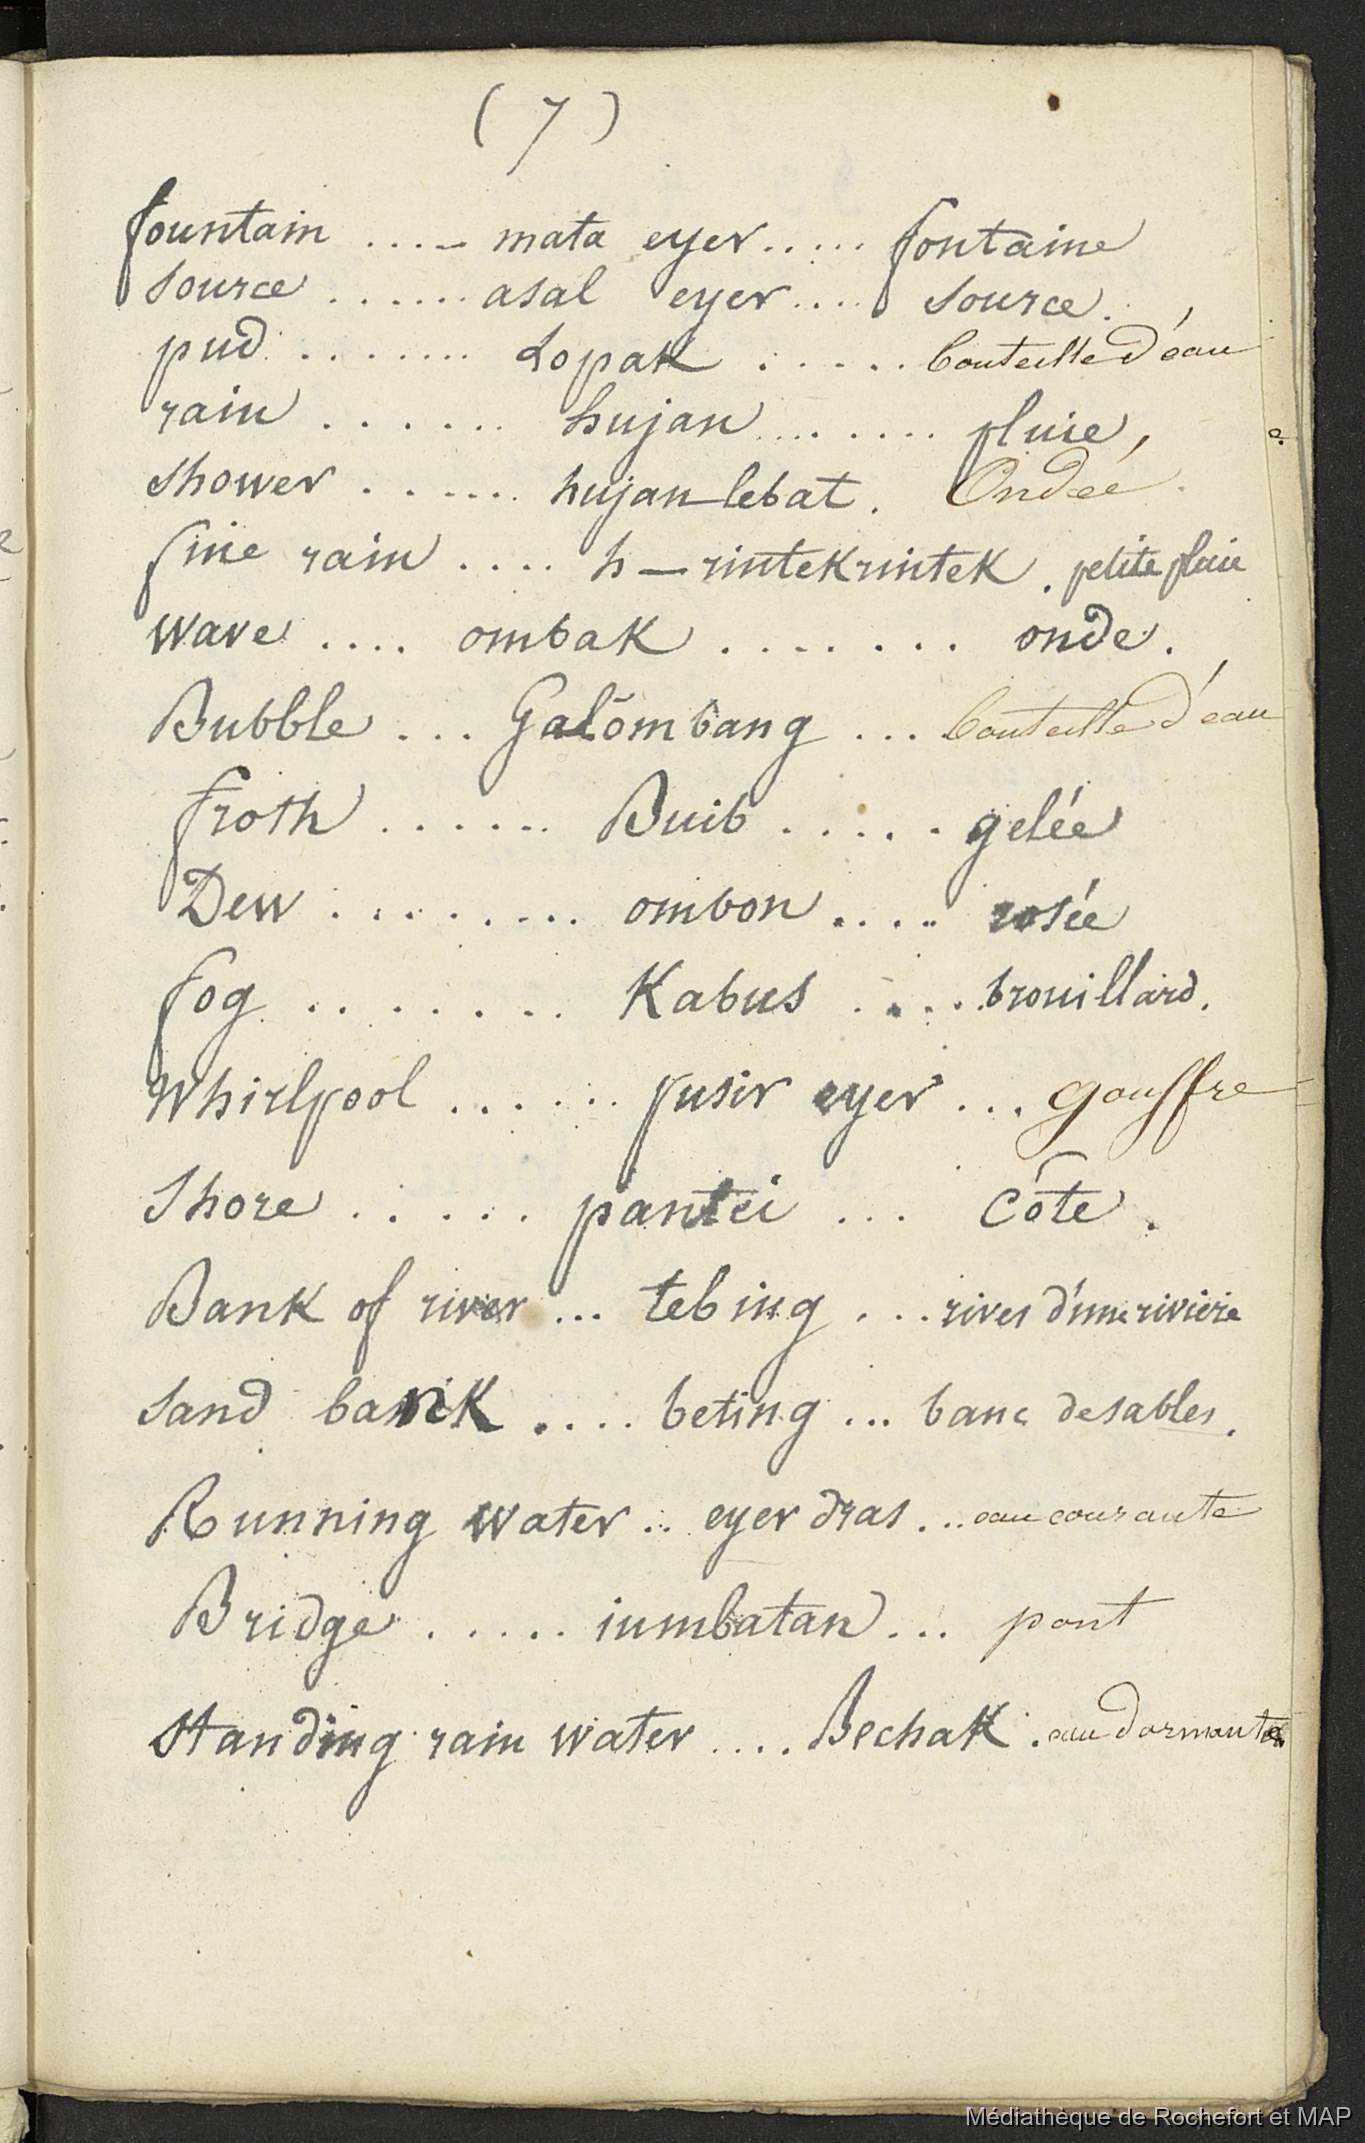 ( 7 )
fountain ..... mata eyer ..... fontaine
source ...... asal eyer .... source.
pud ........ Lopak ..... bouteille d'éau
rain ....... hujan ........ pluie,
shower ...... hujan lebat. Ondée.
fine rain .... h — rintekrintek. petite pluie
wave .... ombak ....... onde.
Bubble ... Galombang ... bouteille d'éau
froth ...... Buib ..... gelée
Dew ......... ombon .... rosée
fog ....... Kabus .... brouillard.
Whirlpool ...... pusir eyer ... gouffre
Shore ..... pantei ... Côte.
Bank of river ... tebing ... rives d'une riviere
sand bank .... beting ... banc de sables.
Running water .. eyer dras ... eau courante
Bridge ..... iumbatan ... pont
Standing rain water .... Bechak . eau dormante
Médiathèque de Rochefort et MAP